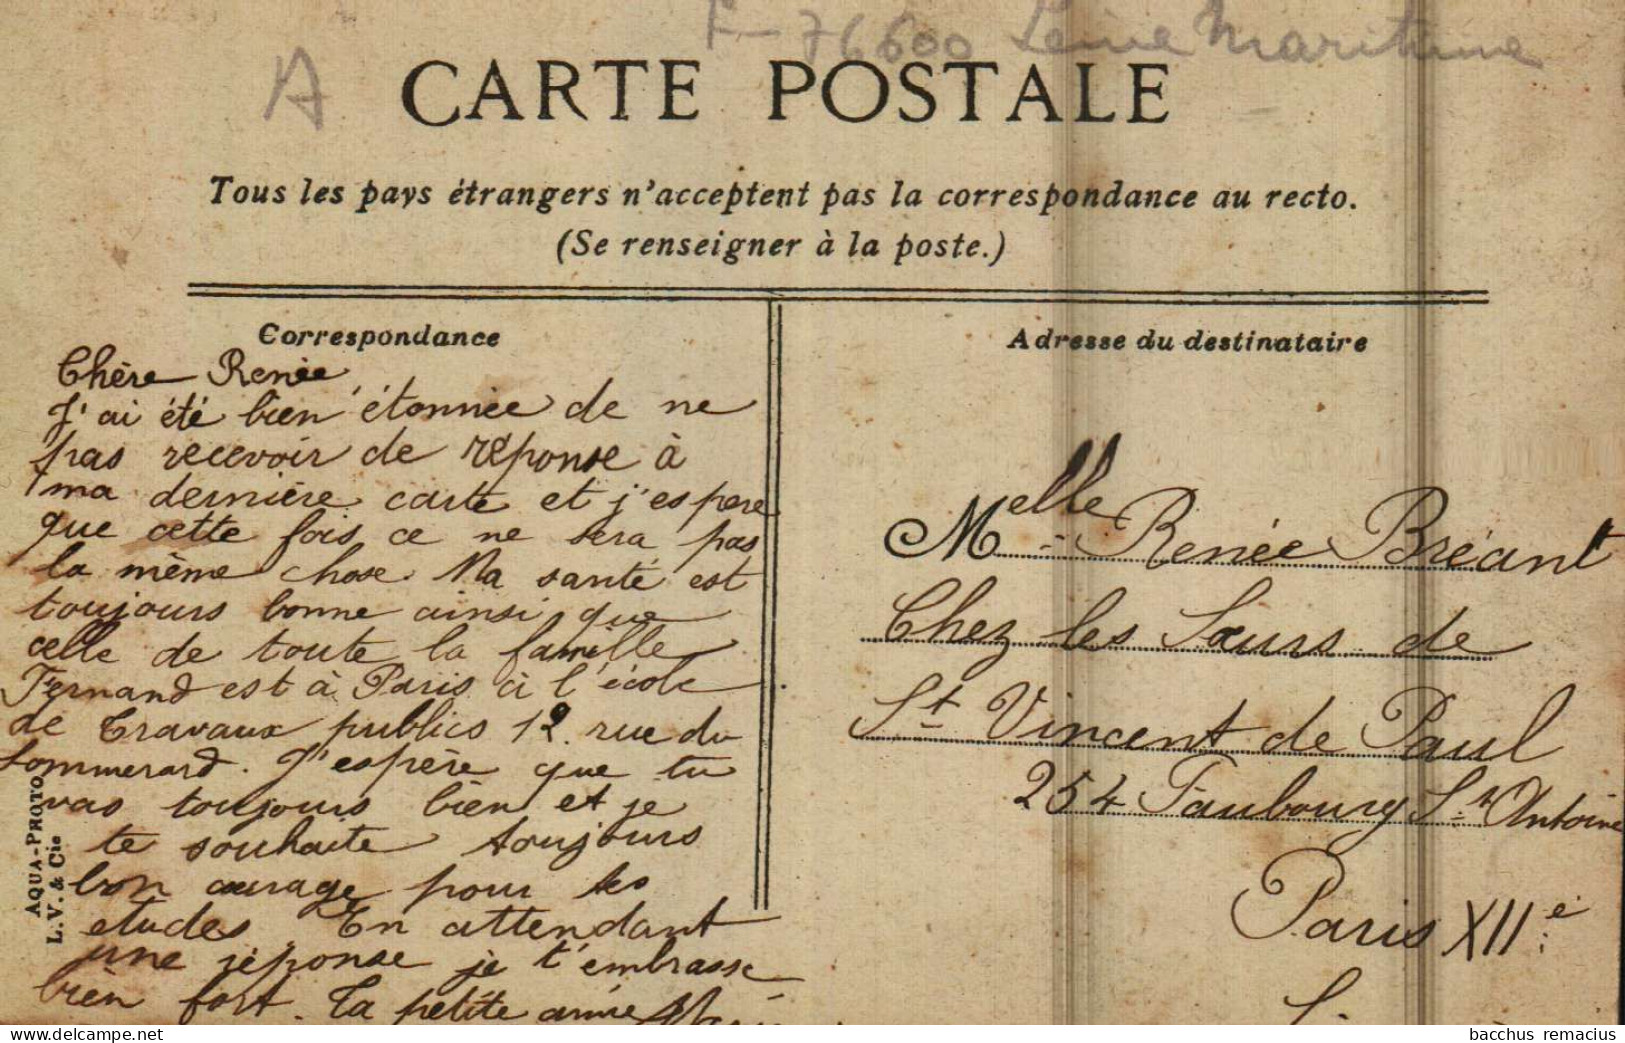 F-76600 Seine Maritime
A
CARTE POSTALE
Tous les pays étrangers n'acceptent pas la correspondance au recto.
(Se renseigner à la poste.)
Correspondance
Chère Renée,
J'ai été bien étonnée de ne
pas recevoir de réponse à
ma dernière carte et j'espere
que cette fois ce ne sera pas
la même chose. Ma santé est
toujours bonne ainsi que
celle de toute la famille
Fernand est à Paris à l'école
de travaux publics 12 rue du
Sommerard. J'espère que tu
vas toujours bien et je
te souhaite toujours
bon courage pour tes
etudes. En attendant
une réponse je t'embrasse
bien fort. Ta petite amie
AQUA-PHOTO
L. V. & Cie
Adresse du destinataire
Melle Renée Bréant
Chez les Sœurs de
St Vincent de Paul
254 Faubourg St Antoine
Paris XIIe
bacchus remacius